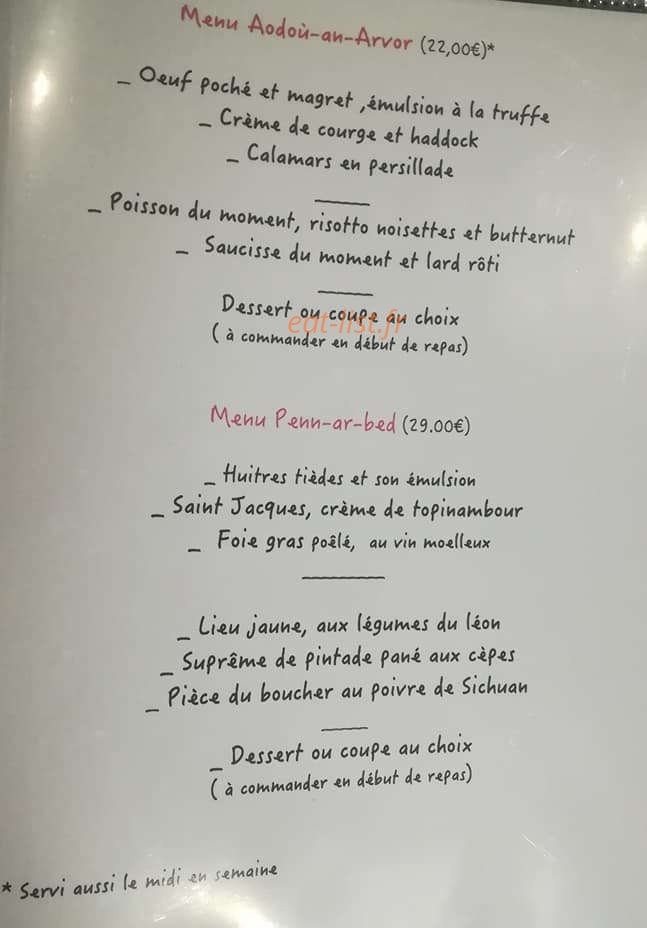 Menu Aodoù-an-Arvor (22,00€)*
_ Oeuf poché et magret ,émulsion à la truffe
_ Crème de courge et haddock
_ Calamars en persillade
_ Poisson du moment, risotto noisettes et butternut
_ Saucisse du moment et lard rôti
Dessert ou coupe au choix
eat-list.fr
( à commander en début de repas)
Menu Penn-ar-bed (29.00€)
_ Huitres tièdes et son émulsion
_ Saint Jacques, crème de topinambour
_ Foie gras poêlé, au vin moelleux
_ Lieu jaune, aux légumes du léon
_ Suprême de pintade pané aux cèpes
_ Pièce du boucher au poivre de Sichuan
_ Dessert ou coupe au choix
( à commander en début de repas)
* Servi aussi le midi en semaine